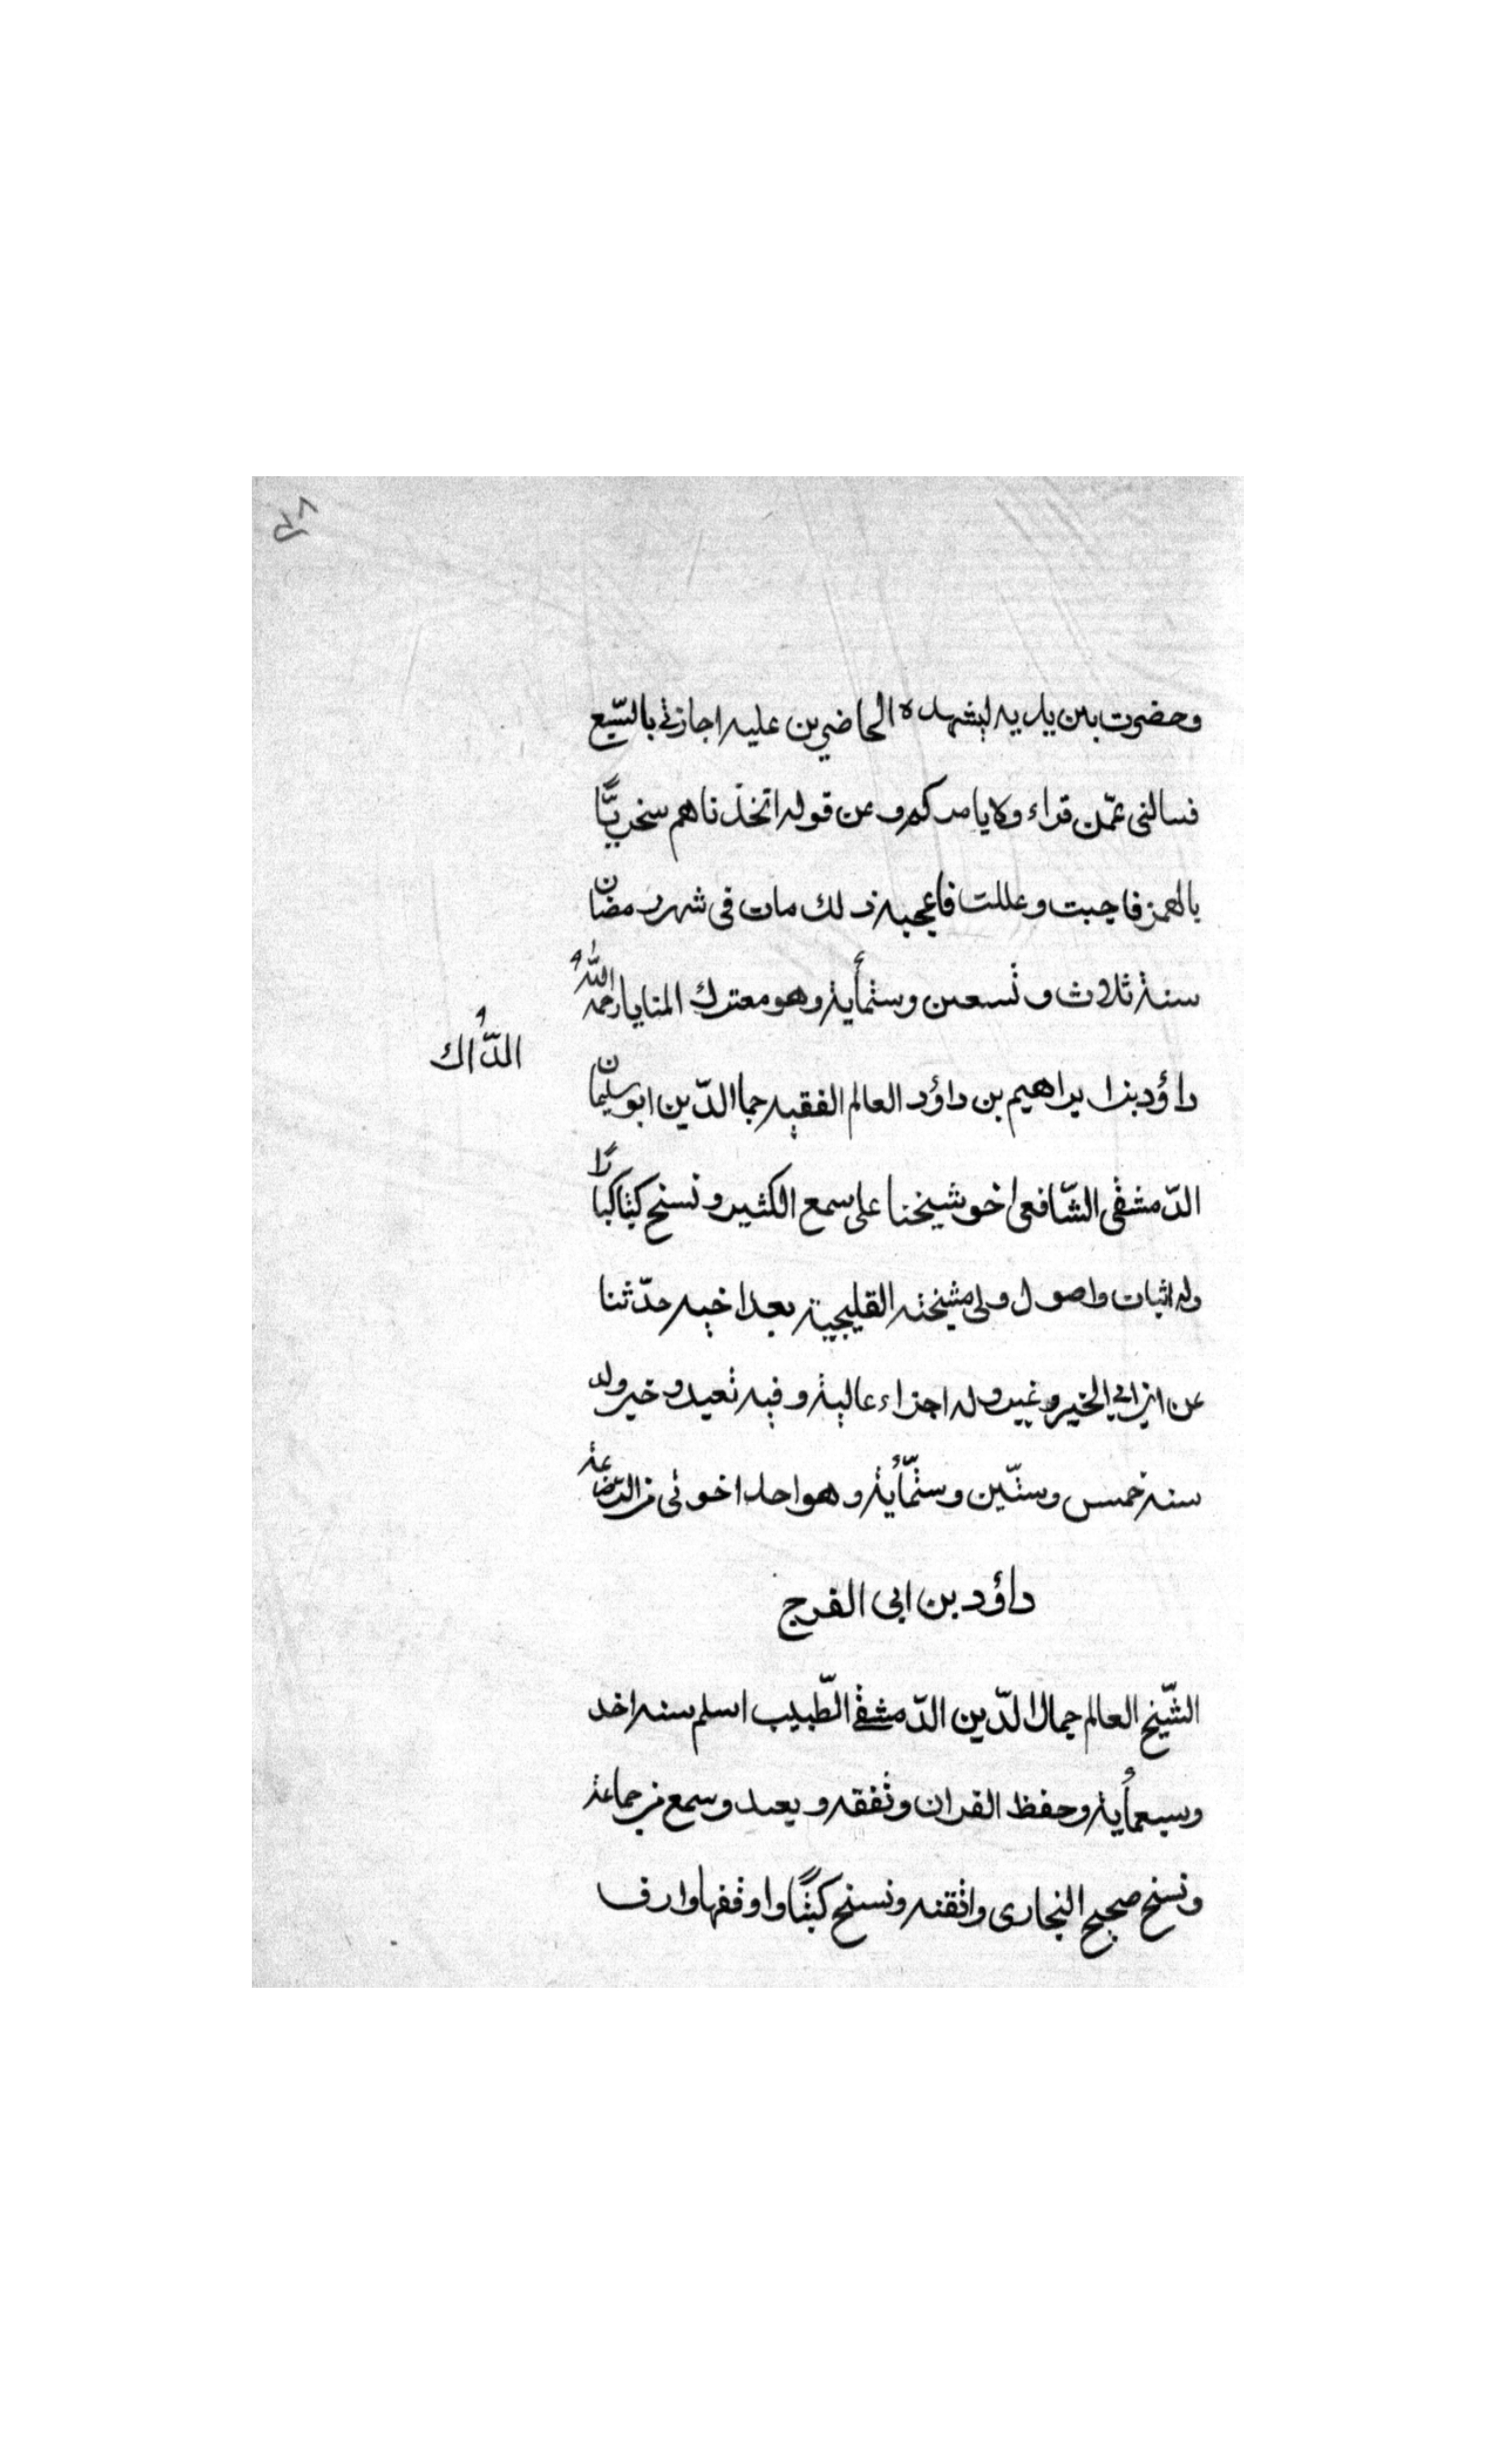 وحضرت بين يديه ليشهده الحاضرين عليه اجازتي بالسّبع
فسالنى عمّن قراء ولا يامركم و عن قوله اتخذناهم سخريًّا
بالهمز فاجبت وعللت فاعجبه ذلك مات فى شهر رمضان
سنة ثلاث و تسعين وستمأية وهو معترك المنايا رحمه الله
الدّال
داؤد بن ابراهيم بن داؤد العالم الفقيه جما الدّين ابو سليمان
الدّمشقى الشّافعى اخو شيخنا على سمع الكثير و نسخ كتبا كبارًا
وله اثبات واصول ولى مشيخته القليجية بعد اخيه حدّثنا
عن ابن ابي الخير وغيره وله اجزاء عالية و فيه تعبد و خير ولد
سنة خمس وستّين وستّمأية و هو احد اخوتى من الرّضاعة
داؤد بن ابى الفرج
الشّيخ العالم جمال الدّين الدّمشقي الطّبيب اسلم سنه احد
وسبعمأية وحفظ القران وتفقه و يعبد وسمع من جماعة
ونسخ صحيح البخارى واتقنه ونسخ كتبًا واوقفها وارف